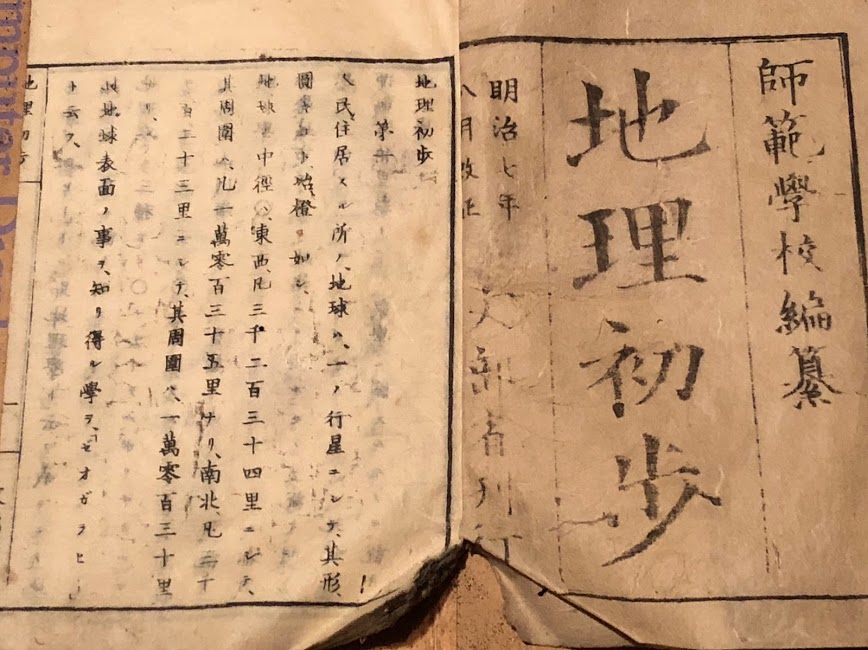 師範學校編纂
地理初歩
明治七年
八月改正
文部省刊行
地理初歩
第
人民住居スル所ノ、地球ハ、一ノ行星ニシテ、其形、
圓キコト、恰橙ノ如シ、
地球ノ中徑ハ、東西、凡三千二百三十四里ニシテ、
其周圍ハ、凡一萬零百三十五里ナリ、南北、凡三千
二百二十三里ニシテ、其周圍ハ、一萬零百三十里
ナリ、
此地球表面ノ事ヲ、知リ得ル學ヲ、「ゼオガラヒー」
ト云フ、
地理初歩